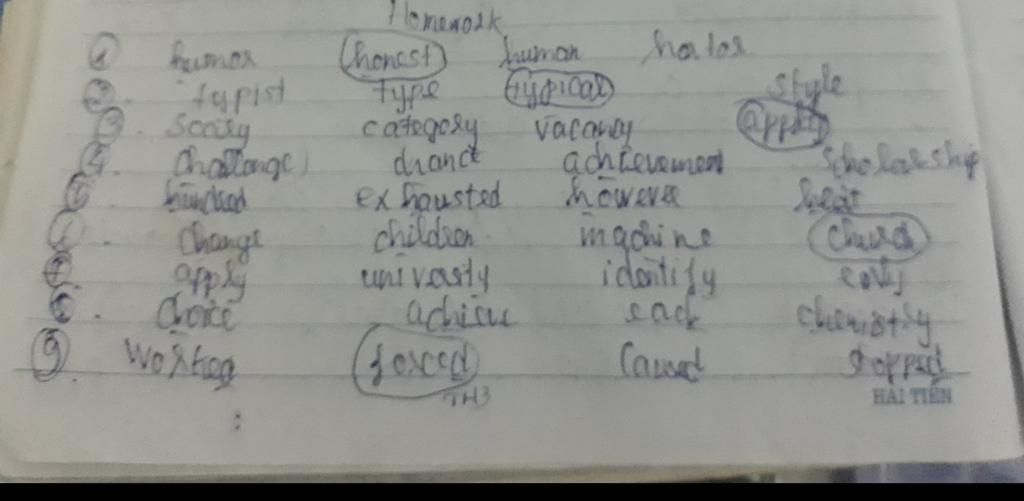 Homework
1 humor honest human hator
2. typist type typical style
3. scary category vacancy apply
4. Challenge chance achievement Scholarship
5 hundred exhausted however heir
6. Change children machine church
7 apply univarsty identify early
8. Choice achieve each chemistry
9. worked forced Caused stopped
TH3
HẢI TIẾN